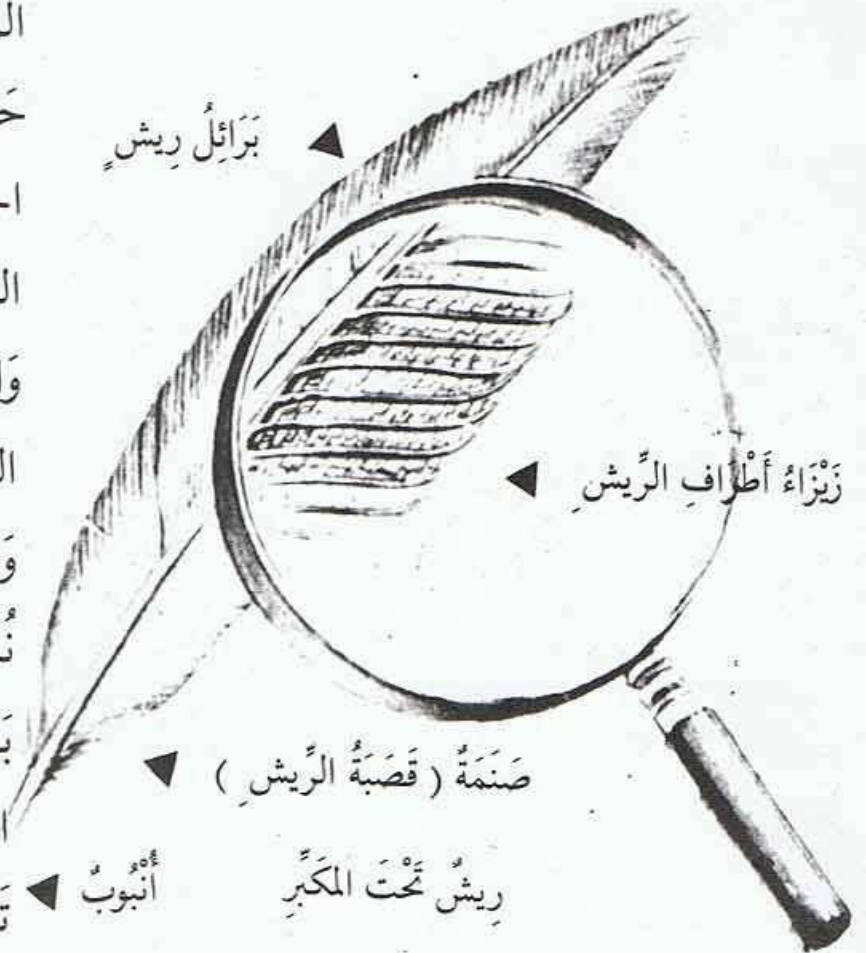 بَرَائِلُ رِيشٍ
زَيْزَاءُ أَطْرَافِ الرِّيشِ
صَنَمَةٌ ( قَصَبَةُ الرِّيشِ )
أُنْبُوبٌ
رِيشٌ تَحْتَ المَكَبِّرِ